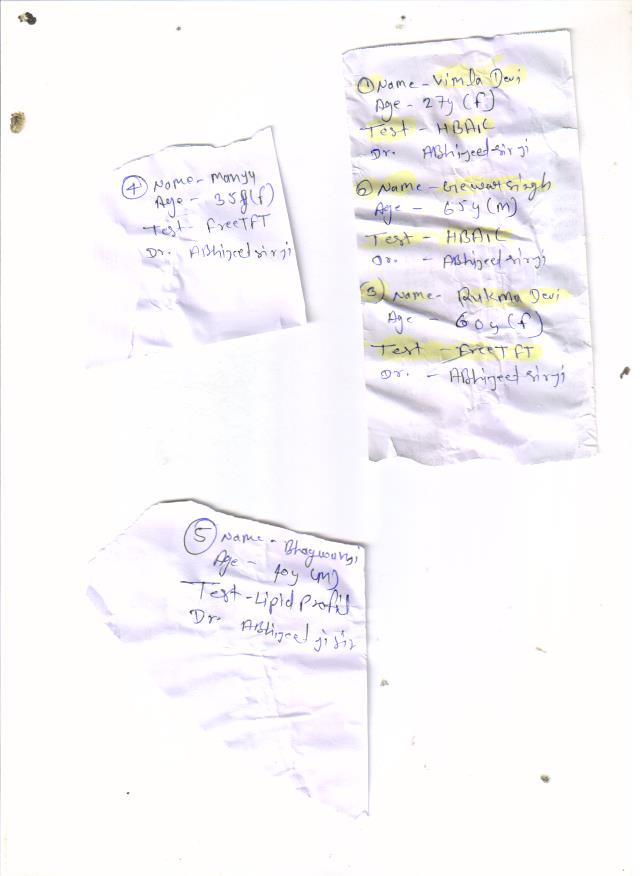 ① Name - Vimla Devi
Age - 27y (f)
Test - HBA1C
Dr. ABhijeet sir ji
② Name - Gewar singh
Age - 65y (M)
Test - HBA1C
Dr. - ABhijeet sir ji
③ Name - Rukma Devi
Age - 60y (f)
Test - Free TFT
Dr. - ABhijeet sir ji
④ Name -
Age - 35y (f)
Test - Free TFT
Dr. ABhijeet sir ji
⑤ Name -
Age - 40y (M)
Test - Lipid Profil
Dr. ABhijeet ji sir